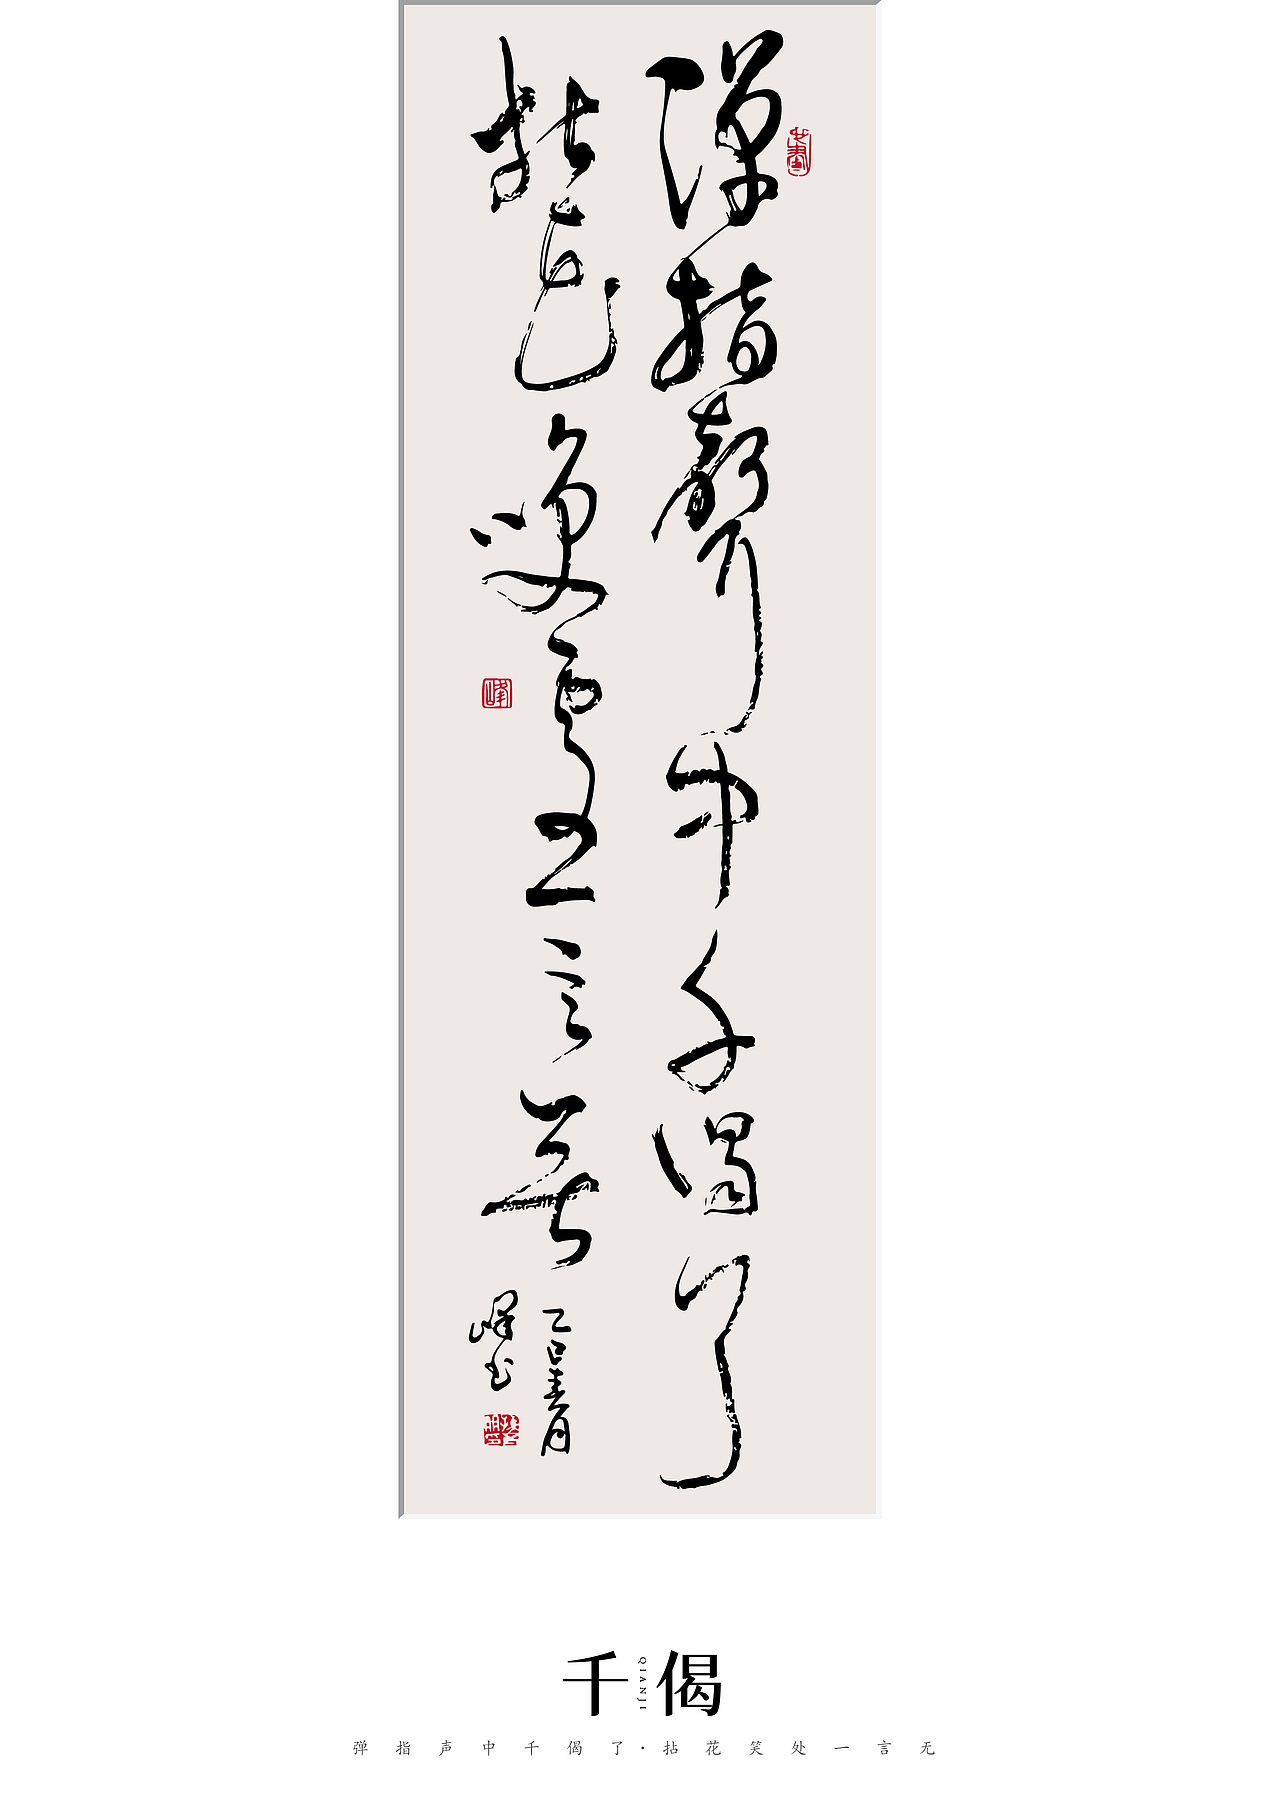 彈指聲中千偈了
拈花笑處一言無
乙巳春月
峰書
峰
千偈
QIANJI
弹指声中千偈了·拈花笑处一言无